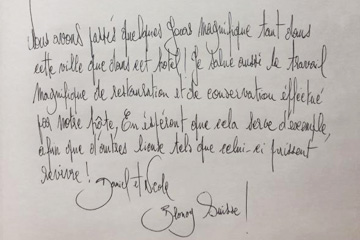 Nous avons passés quelques jours magnifique tant dans
cette ville que dans cet hôtel! Je salue aussi le travail
magnifique de restauration et de conservation effectué
par notre hôte, En espérant que cela serve d'exemple,
afin que d'autres lieux tels que celui-ci puissent
revivre!
Daniel et Nicole
Blonay Suisse!